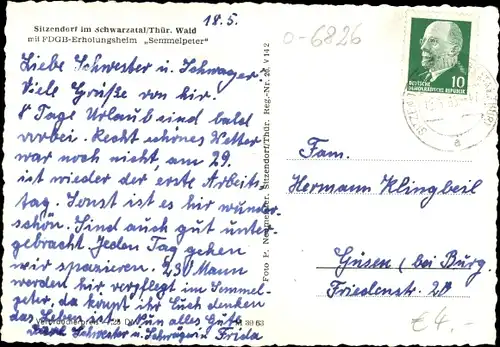 18.5.
Sitzendorf im Schwarzatal/Thür. Wald
mit FDGB-Erholungsheim „Semmelpeter"
0-6826
Liebe Schwester u. Schwager
Viele Grüße von hir.
8 Tage Urlaub sind bald
vorbei. Recht schönes Wetter
war noch nicht, am 29.
ist wieder der erste Arbeits
tag. Sonst ist es hir wunder-
schön. Sind auch gut unter
gebracht Jeden Tag gehen
wir spazieren. 230 Mann
werden hir verpflegt im Semmel-
peter, da könnt ihr Euch denken
das Leben ist. Nun alles Gute
Eure Schwester u. Schwager Frida
Sitzendorf/Thür. Reg.-Nr.
10
DEUTSCHE
DEMOKRATISCHE REPUBLIK
a
Fam.
Hermann Klingbeil
Güsen (bei Burg)
Friedenstr. 20
€4.-